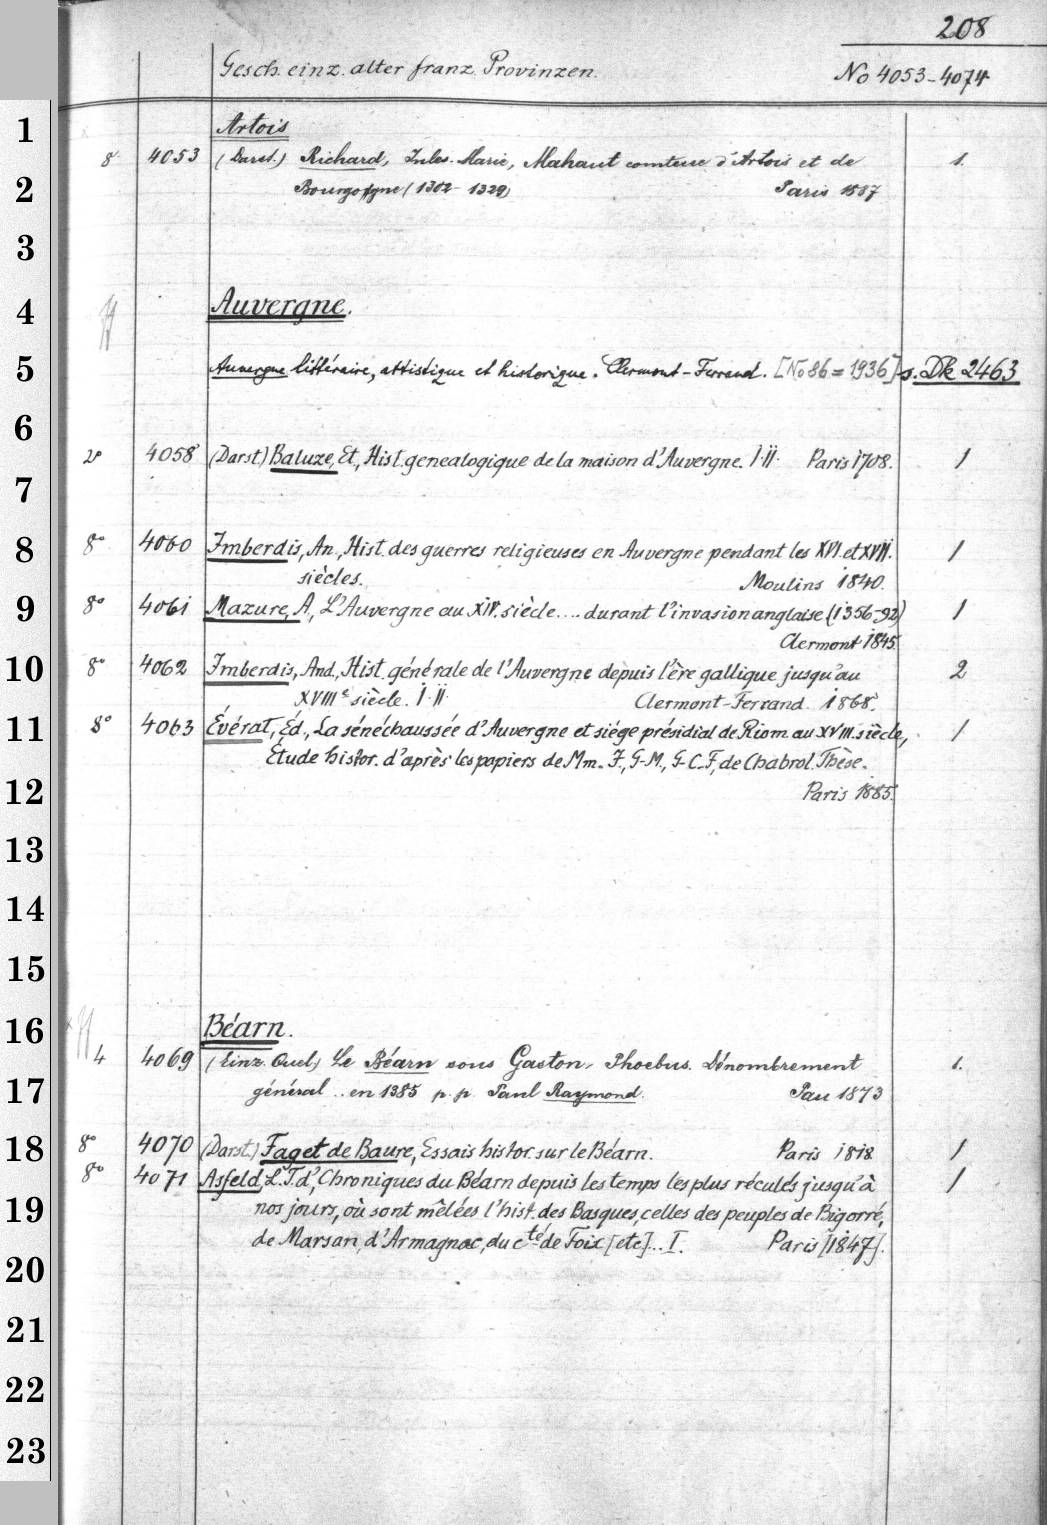 208
Gesch. einz. alter franz. Provinzen. No 4053-4074
1 Artois
8° 4053 (Darst.) Richard, Jules-Marie, Mahaut comtesse d'Artois et de 1.
2 Bourgogne (1302-1329) Paris 1887
3
4 Auvergne.
5 Auvergne littéraire, artistique et historique. Clermont-Ferrand. [No 86 = 1936] s. Dk 2463
6
2° 4058 (Darst.) Baluze, Et., Hist. genealogique de la maison d'Auvergne. I.II. Paris 1708. 1
7
8 8° 4060 Imberdis, An., Hist. des guerres religieuses en Auvergne pendant les XVI. et XVII. 1
siècles. Moulins 1840.
9 8° 4061 Mazure, A., L'Auvergne au XIV. siècle.... durant l'invasion anglaise (1356-92) 1
Clermont 1845.
10 8° 4062 Imberdis, And., Hist. générale de l'Auvergne depuis l'ère gallique jusqu'au 2
XVIIIe siècle. I.II. Clermont-Ferrand. 1868.
11 8° 4063 Évérat, Éd., La sénéchaussée d'Auvergne et siége présidial de Riom au XVIII. siècle, 1
Étude histor. d'après les papiers de Mm. J., G-M., G-C.F, de Chabrol. Thèse.
12 Paris 1885.
13
14
15
16 Béarn.
4 4069 (Einz. Quel.) Le Béarn sous Gaston-Phoebus. Dénombrement 1.
17 général .. en 1385 p. p. Paul Raymond. Pau 1873
18 8° 4070 (Darst.) Faget de Baure, Essais histor. sur le Béarn. Paris 1818 1
8° 4071 Asfeld, L.T. d', Chroniques du Béarn depuis les temps les plus réculés jusqu'à 1
19 nos jours, où sont mêlées l'hist. des Basques, celles des peuples de Bigorré,
de Marsan, d'Armagnac, du cté de Foix [etc]... I. Paris [1847].
20
21
22
23